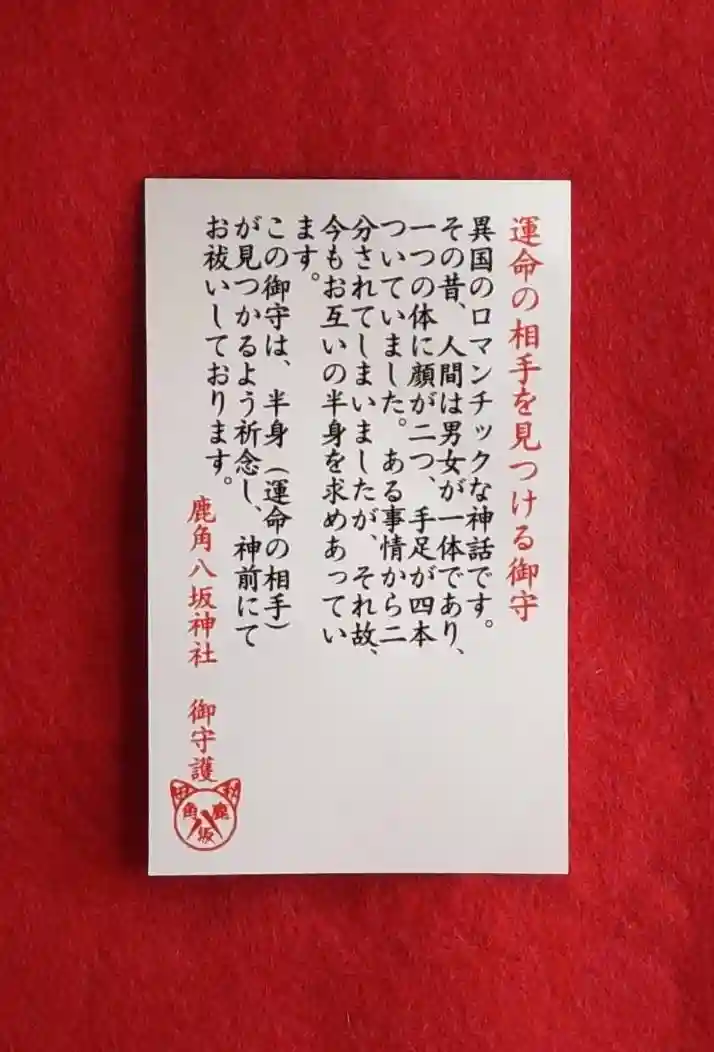 運命の相手を見つける御守
異国のロマンチックな神話です。
その昔、人間は男女が一体であり、
一つの体に顔が二つ、手足が四本
ついていました。ある事情から二
分されてしまいましたが、それ故、
今もお互いの半身を求めあってい
ます。
この御守は、半身（運命の相手）
が見つかるよう祈念し、神前にて
お祓いしております。
鹿角八坂神社　御守護
秋田
鹿角
八坂